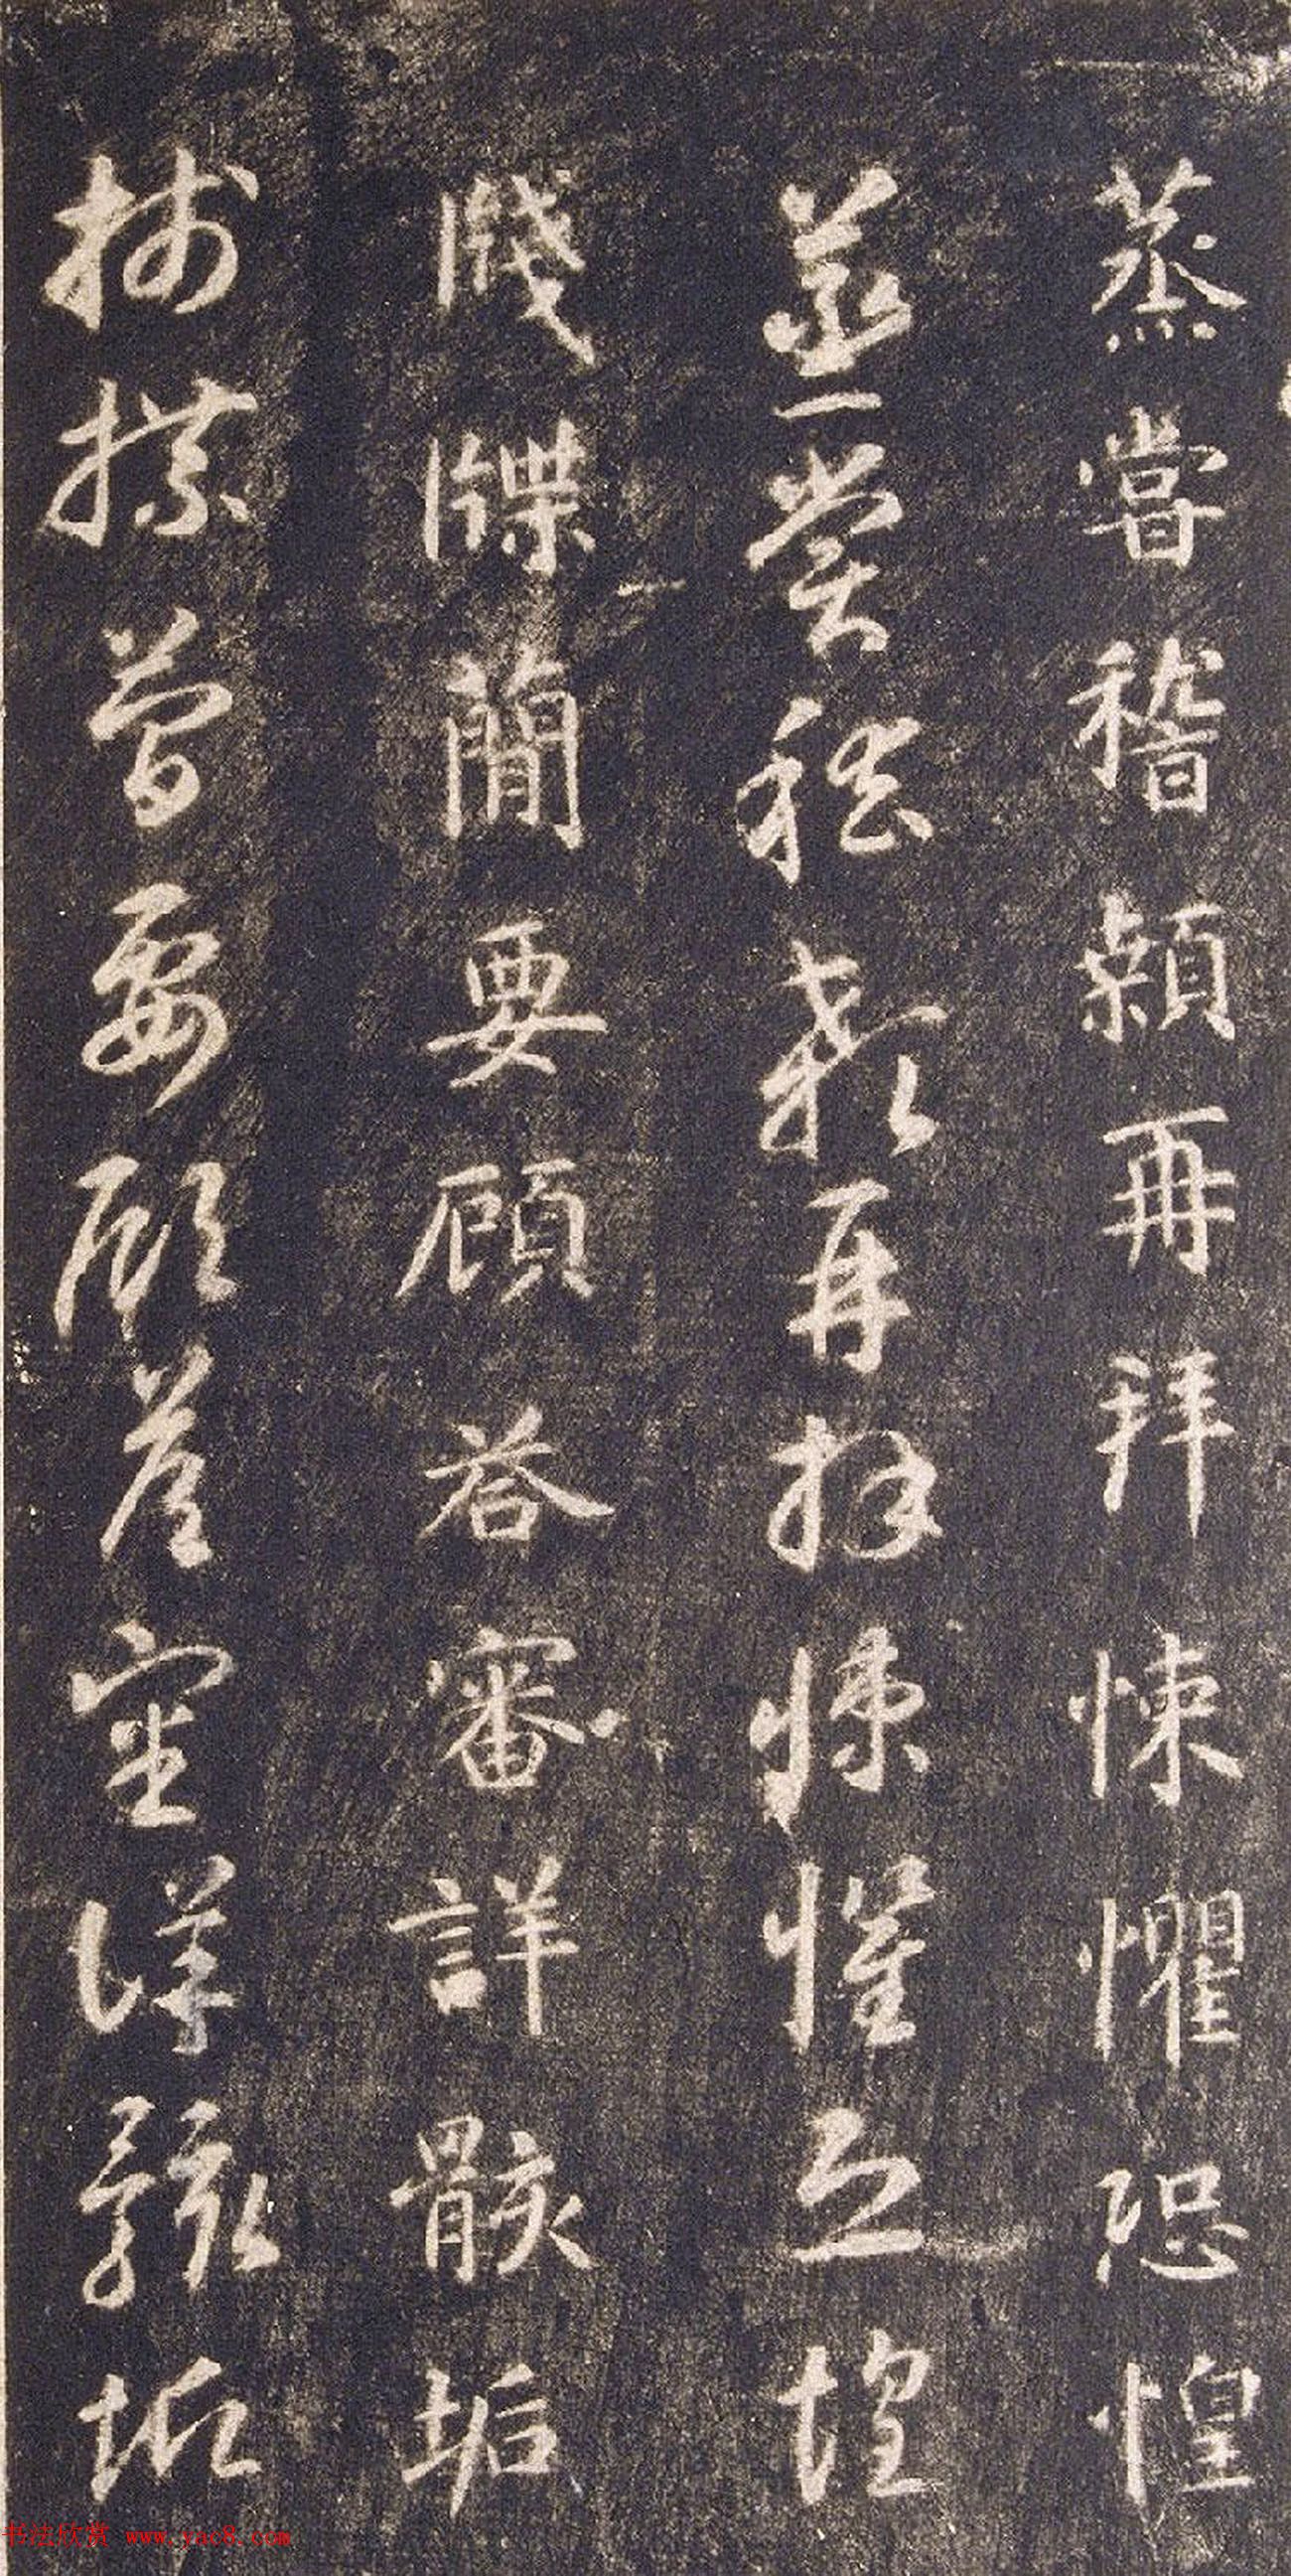 蒸嘗稽顙再拜悚懼恐惶
蒸嘗稽顙再拜悚懼恐惶
牋牒簡要顧答審詳骸垢
牋牒簡要顧答審詳骸垢
书法欣赏 www.yac8.com